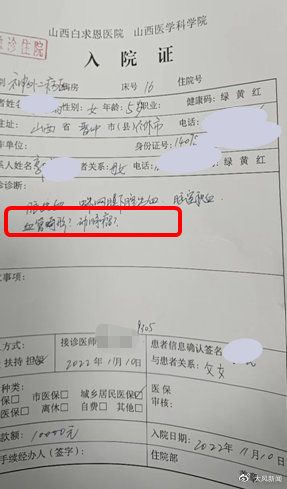 山西白求恩医院 山西医学科学院
急诊住院
入院证
别 神外二病区 病房 床号 16 住院号
者姓名 性别 女 年龄 5岁 职业: 健康码: 绿 黄 红
住址: 山西 省 晋中 市(县) 介休市 电话:
单位: 身份证号: 1407
系人姓名 者关系: 母女 电话: 健康码: 绿 黄 红
诊诊断:
脑出血 蛛网膜下腔出血 脑室积血
血管畸形? 动脉瘤?
意事项:
方式: 接诊医师 9305 患者信息确认签名
扶持 担 2022年11月10日 与患者关系: 父女
种类: 医保
保口 市医保口 城乡居民医保 审核:
医保口 离休口 自费口 其他口
款额: 10000元 入院日期: 2022年11月10日
手续经办人(签字): 住院部
大风新闻